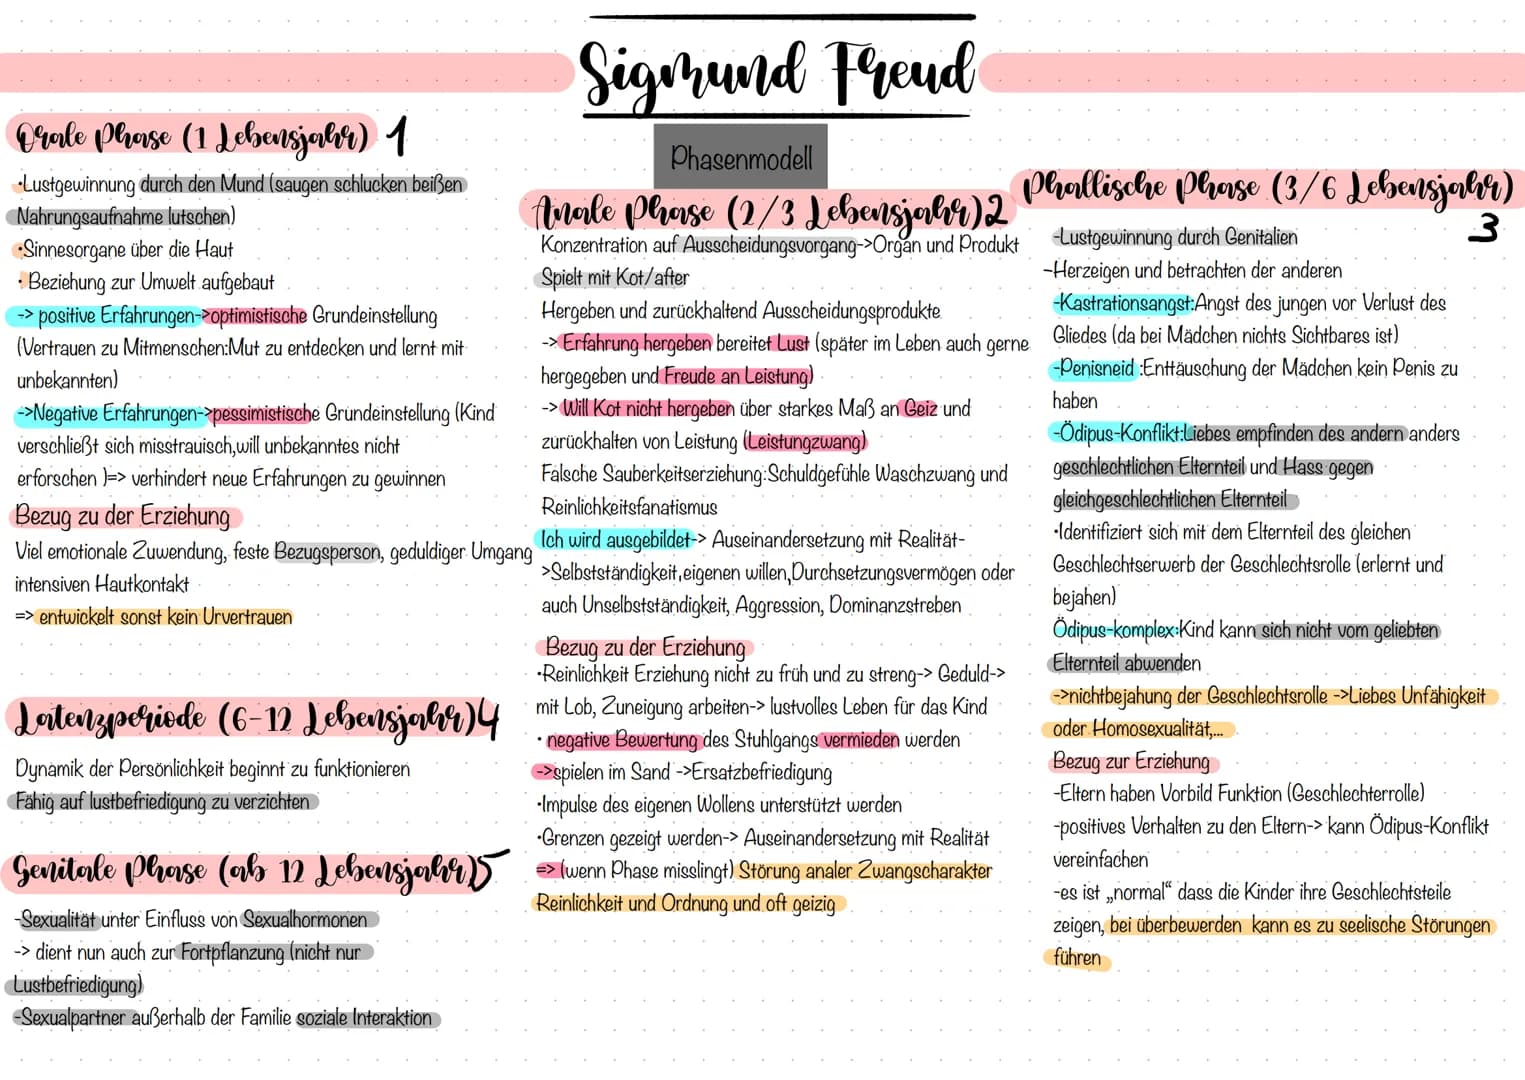 Sigmund Freud
Phasenmodell
Orale Phase (1 Lebensjahr) 1
•Lustgewinnung durch den Mund (saugen schlucken beißen
Nahrungsaufnahme lutschen)
•Sinnesorgane über die Haut
• Beziehung zur Umwelt aufgebaut
-> positive Erfahrungen->optimistische Grundeinstellung
(Vertrauen zu Mitmenschen:Mut zu entdecken und lernt mit
unbekannten)
->Negative Erfahrungen->pessimistische Grundeinstellung (Kind
verschließt sich misstrauisch,will unbekanntes nicht
erforschen )=> verhindert neue Erfahrungen zu gewinnen
Bezug zu der Erziehung
Viel emotionale Zuwendung, feste Bezugsperson, geduldiger Umgang
intensiven Hautkontakt
=> entwickelt sonst kein Urvertrauen
Latenzperiode (6-12 Lebensjahr)4
Dynamik der Persönlichkeit beginnt zu funktionieren
Fähig auf lustbefriedigung zu verzichten
Genitale Phase (ab 12 Lebensjahr)5
-Sexualität unter Einfluss von Sexualhormonen
-> dient nun auch zur Fortpflanzung (nicht nur
Lustbefriedigung)
-Sexualpartner außerhalb der Familie soziale Interaktion
Anale Phase (2/3 Lebensjahr)2
Konzentration auf Ausscheidungsvorgang->Organ und Produkt
Spielt mit Kot/after
Hergeben und zurückhaltend Ausscheidungsprodukte
-> Erfahrung hergeben bereitet Lust (später im Leben auch gerne
hergegeben und Freude an Leistung)
-> Will Kot nicht hergeben über starkes Maß an Geiz und
zurückhalten von Leistung (Leistungzwang)
Falsche Sauberkeitserziehung:Schuldgefühle Waschzwang und
Reinlichkeitsfanatismus
Ich wird ausgebildet-> Auseinandersetzung mit Realität-
>Selbstständigkeit,eigenen willen,Durchsetzungsvermögen oder
auch Unselbstständigkeit, Aggression, Dominanzstreben
Bezug zu der Erziehung
•Reinlichkeit Erziehung nicht zu früh und zu streng-> Geduld->
mit Lob, Zuneigung arbeiten-> lustvolles Leben für das Kind
• negative Bewertung des Stuhlgangs vermieden werden
->spielen im Sand ->Ersatzbefriedigung
•Impulse des eigenen Wollens unterstützt werden
•Grenzen gezeigt werden-> Auseinandersetzung mit Realität
=> (wenn Phase misslingt) Störung analer Zwangscharakter
Reinlichkeit und Ordnung und oft geizig
Phallische Phase (3/6 Lebensjahr)
3
-Lustgewinnung durch Genitalien
-Herzeigen und betrachten der anderen
-Kastrationsangst:Angst des jungen vor Verlust des
Gliedes (da bei Mädchen nichts Sichtbares ist)
-Penisneid :Enttäuschung der Mädchen kein Penis zu
haben
-Ödipus-Konflikt:Liebes empfinden des andern anders
geschlechtlichen Elternteil und Hass gegen
gleichgeschlechtlichen Elternteil
•Identifiziert sich mit dem Elternteil des gleichen
Geschlechtserwerb der Geschlechtsrolle (erlernt und
bejahen)
Ödipus-komplex:Kind kann sich nicht vom geliebten
Elternteil abwenden
->nichtbejahung der Geschlechtsrolle ->Liebes Unfähigkeit
oder Homosexualität,...
Bezug zur Erziehung
-Eltern haben Vorbild Funktion (Geschlechterrolle)
-positives Verhalten zu den Eltern-> kann Ödipus-Konflikt
vereinfachen
-es ist „normal“ dass die Kinder ihre Geschlechtsteile
zeigen, bei überbewerden kann es zu seelische Störungen
führen